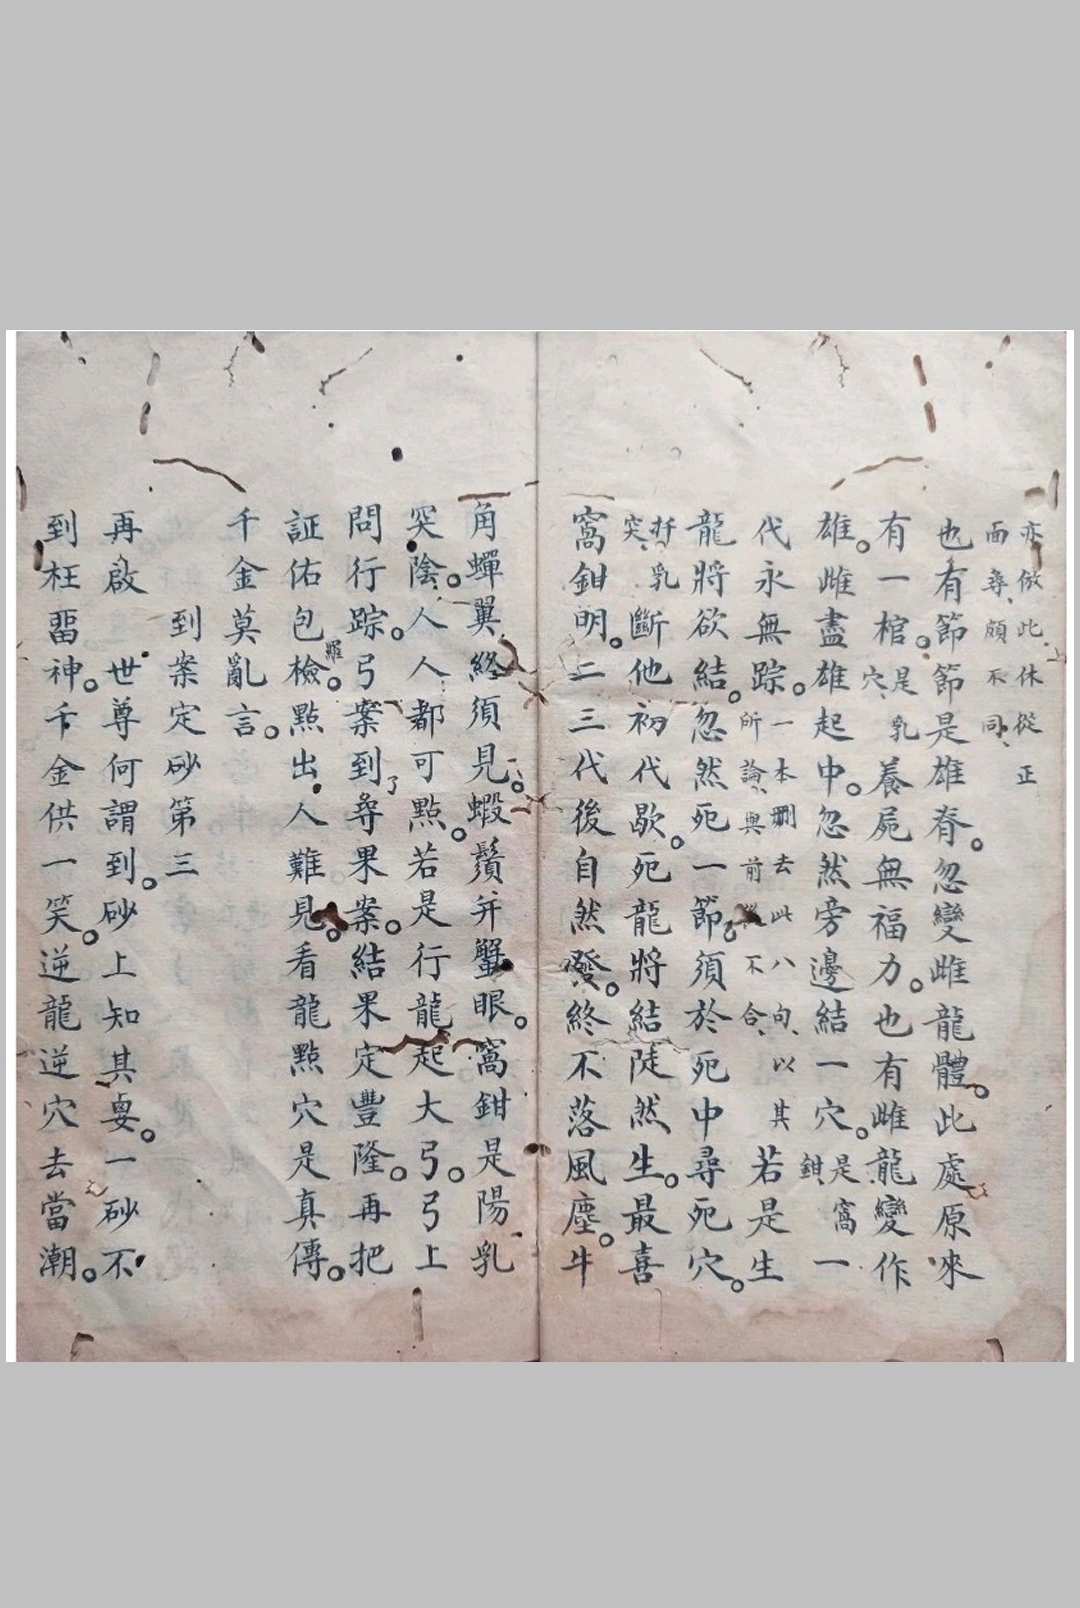 亦倣此休從正
面尋頗不同
也有節節是雄脊忽變雌龍體此處原來
有一棺是乳穴養屍無福力也有雌龍變作
雄雌盡雄起中忽然旁邊結一穴是窩鉗一
代永無踪一本刪去此八句以其所論與前不合若是生
龍將欲結忽然死一節須於死中尋死穴
扦乳突斷他初代歇死龍將結陡然生最喜
窩鉗明二三代後自然發終不落風塵牛
角蟬翼終須見蝦鬚弁蟹眼窩鉗是陽乳
突陰人人都可點若是行龍起大弓弓上
問行踪弓案到了尋果案結果定豐隆再把
証佑包羅檢點出人難見看龍點穴是真傳
千金莫亂言
到案定砂第三
再啟世尊何謂到砂上知其要一砂不
到枉畱神千金供一笑逆龍逆穴去當潮